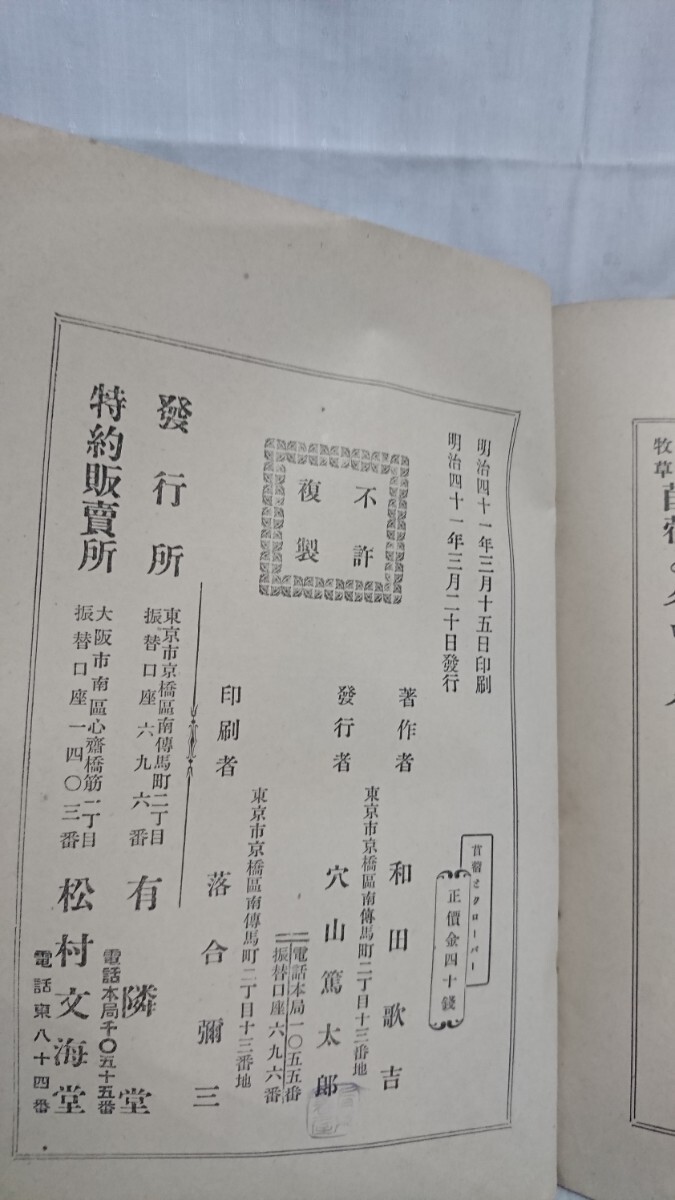 牧草
明治四十一年三月十五日印刷
明治四十一年三月二十日發行
不許
複製
苜蓿とクローバー
正價金四十錢
著作者 和田歌吉
東京市京橋區南傳馬町二丁目十三番地
發行者 穴山篤太郎
電話本局一〇五五番
振替口座六九六番
東京市京橋區南傳馬町二丁目十三番地
印刷者 落合彌三
發行所
東京市京橋區南傳馬町二丁目
振替口座六九六番
有隣堂
電話本局千〇五十五番
特約販賣所
大阪市南區心齋橋筋一丁目
振替口座一四〇三番
松村文海堂
電話東八十四番